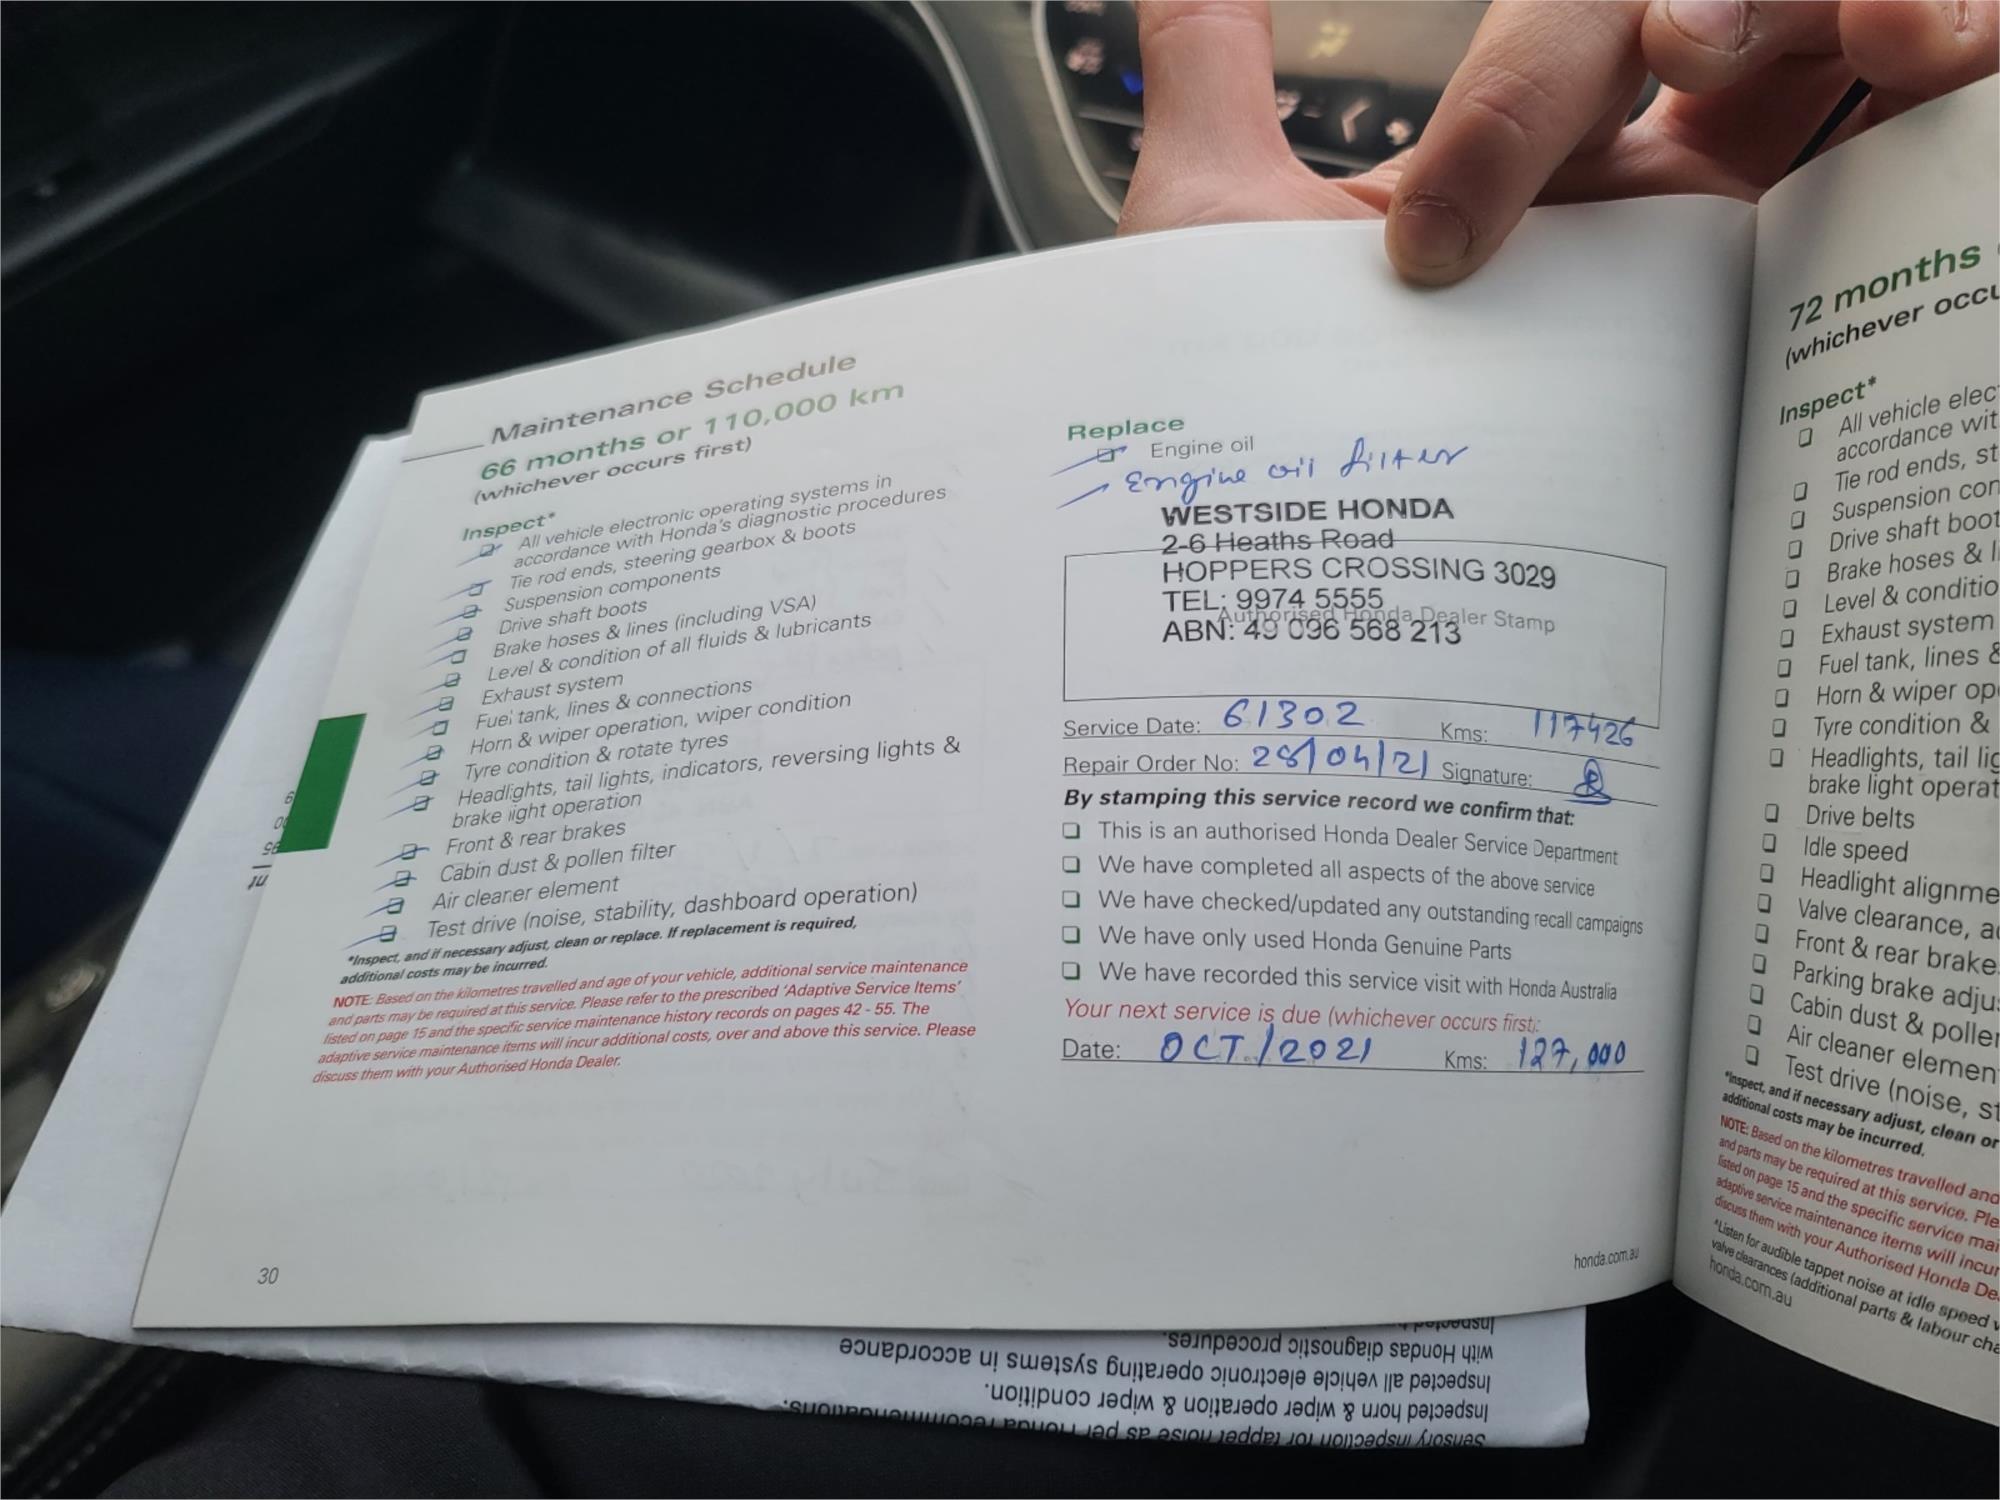 Maintenance Schedule
66 months or 110,000 km
(whichever occurs first)
Inspect*
All vehicle electronic operating systems in
accordance with Honda's diagnostic procedures
Tie rod ends, steering gearbox & boots
Suspension components
Drive shaft boots
Brake hoses & lines (including VSA)
Level & condition of all fluids & lubricants
Exhaust system
Fuel tank, lines & connections
Horn & wiper operation, wiper condition
Tyre condition & rotate tyres
Headlights, tail lights, indicators, reversing lights &
brake light operation
Front & rear brakes
Cabin dust & pollen filter
Air cleaner element
Test drive (noise, stability, dashboard operation)
*Inspect, and if necessary adjust, clean or replace. If replacement is required,
additional costs may be incurred.
NOTE: Based on the kilometres travelled and age of your vehicle, additional service maintenance
and parts may be required at this service. Please refer to the prescribed 'Adaptive Service Items'
listed on page 15 and the specific service maintenance history records on pages 42 - 55. The
adaptive service maintenance items will incur additional costs, over and above this service. Please
discuss them with your Authorised Honda Dealer.
30
Replace
Engine oil
Engine oil filter
WESTSIDE HONDA
2-6 Heaths Road
HOPPERS CROSSING 3029
TEL: 9974 5555
Authorised Honda Dealer Stamp
ABN: 49 096 568 213
Service Date: 61302 Kms: 117426
Repair Order No: 28/04/21 Signature:
By stamping this service record we confirm that:
This is an authorised Honda Dealer Service Department
We have completed all aspects of the above service
We have checked/updated any outstanding recall campaigns
We have only used Honda Genuine Parts
We have recorded this service visit with Honda Australia
Your next service is due (whichever occurs first):
Date: OCT/2021 Kms: 127,000
honda.com.au
72 months
(whichever occu
Inspect*
All vehicle elec
accordance wit
Tie rod ends, st
Suspension con
Drive shaft boot
Brake hoses & li
Level & conditio
Exhaust system
Fuel tank, lines &
Horn & wiper ope
Tyre condition &
Headlights, tail lig
brake light operat
Drive belts
Idle speed
Headlight alignme
Valve clearance, a
Front & rear brake
Parking brake adju
Cabin dust & polle
Air cleaner elemen
Test drive (noise, st
*Inspect, and if necessary adjust, clean or
additional costs may be incurred.
NOTE: Based on the kilometres travelled and
and parts may be required at this service. Ple
listed on page 15 and the specific service mai
adaptive service maintenance items will incur
discuss them with your Authorised Honda De
*Listen for audible tappet noise at idle speed
valve clearances (additional parts & labour cha
honda.com.au
Sensory inspection for tappet noise as per Honda recommendations.
Inspected horn & wiper operation & wiper condition.
Inspected all vehicle electronic operating systems in accordance
with Hondas diagnostic procedures.
Inspected